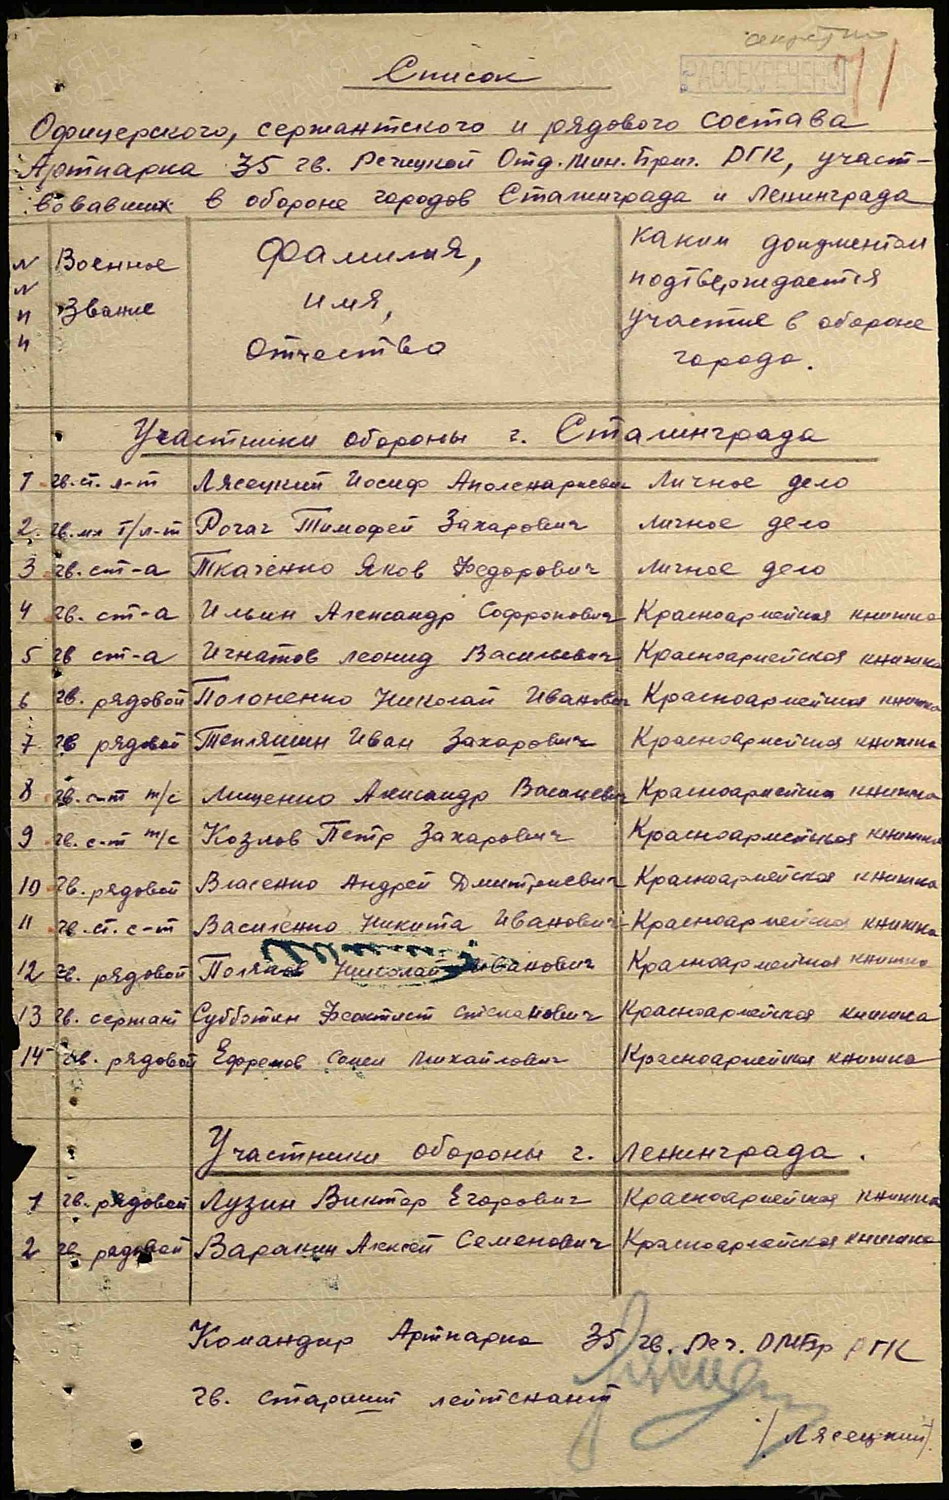 секретно
РАССЕКРЕЧЕНО
71
Список
Офицерского, сержантского и рядового состава
Артпарка 35 гв. Речицкой Отд. Мин. Бриг. РГК, участ-
вовавших в обороне городов Сталинграда и Ленинграда
N N п п
Военное Звание
Фамилия, имя, отчество
каким документом подтверждается участие в обороне города.
Участники обороны г. Сталинграда
1 гв. ст. л-т Лясецкий Иосиф Аполенариевич Личное дело
2. гв. мл т/л-т Рогач Тимофей Захарович личное дело
3 гв. ст-а Ткаченко Яков Федорович личное дело
4 гв. ст-а Ильин Александр Софронович Красноармейская книжка
5 гв ст-а Игнатов Леонид Васильевич Красноармейская книжка
6 гв. рядовой Погоненко Николай Иванович Красноармейская книжка
7 гв рядовой Тепляшин Иван Захарович Красноармейская книжка
8 гв. с-т т/с Лищенко Александр Васильевич Красноармейская книжка
9 гв. с-т т/с Козлов Петр Захарович Красноармейская книжка
10 гв. рядовой Власенко Андрей Дмитриевич Красноармейская книжка
11 гв. ст. с-т Василенко Никита Иванович Красноармейская книжка
12 гв. рядовой Поляков Николай Иванович Красноармейская книжка
13 гв. сержант Субботин Феоктист Степанович Красноармейская книжка
14 гв. рядовой Ефремов Семен Михайлович Красноармейская книжка
Участники обороны г. Ленинграда.
1 гв. рядовой Лузин Виктор Егорович Красноармейская книжка
2 гв. рядовой Варакин Алексей Семенович Красноармейская книжка
Командир Артпарка 35 гв. Реч. ОМБр РГК
гв. старший лейтенант
/Лясецкий/